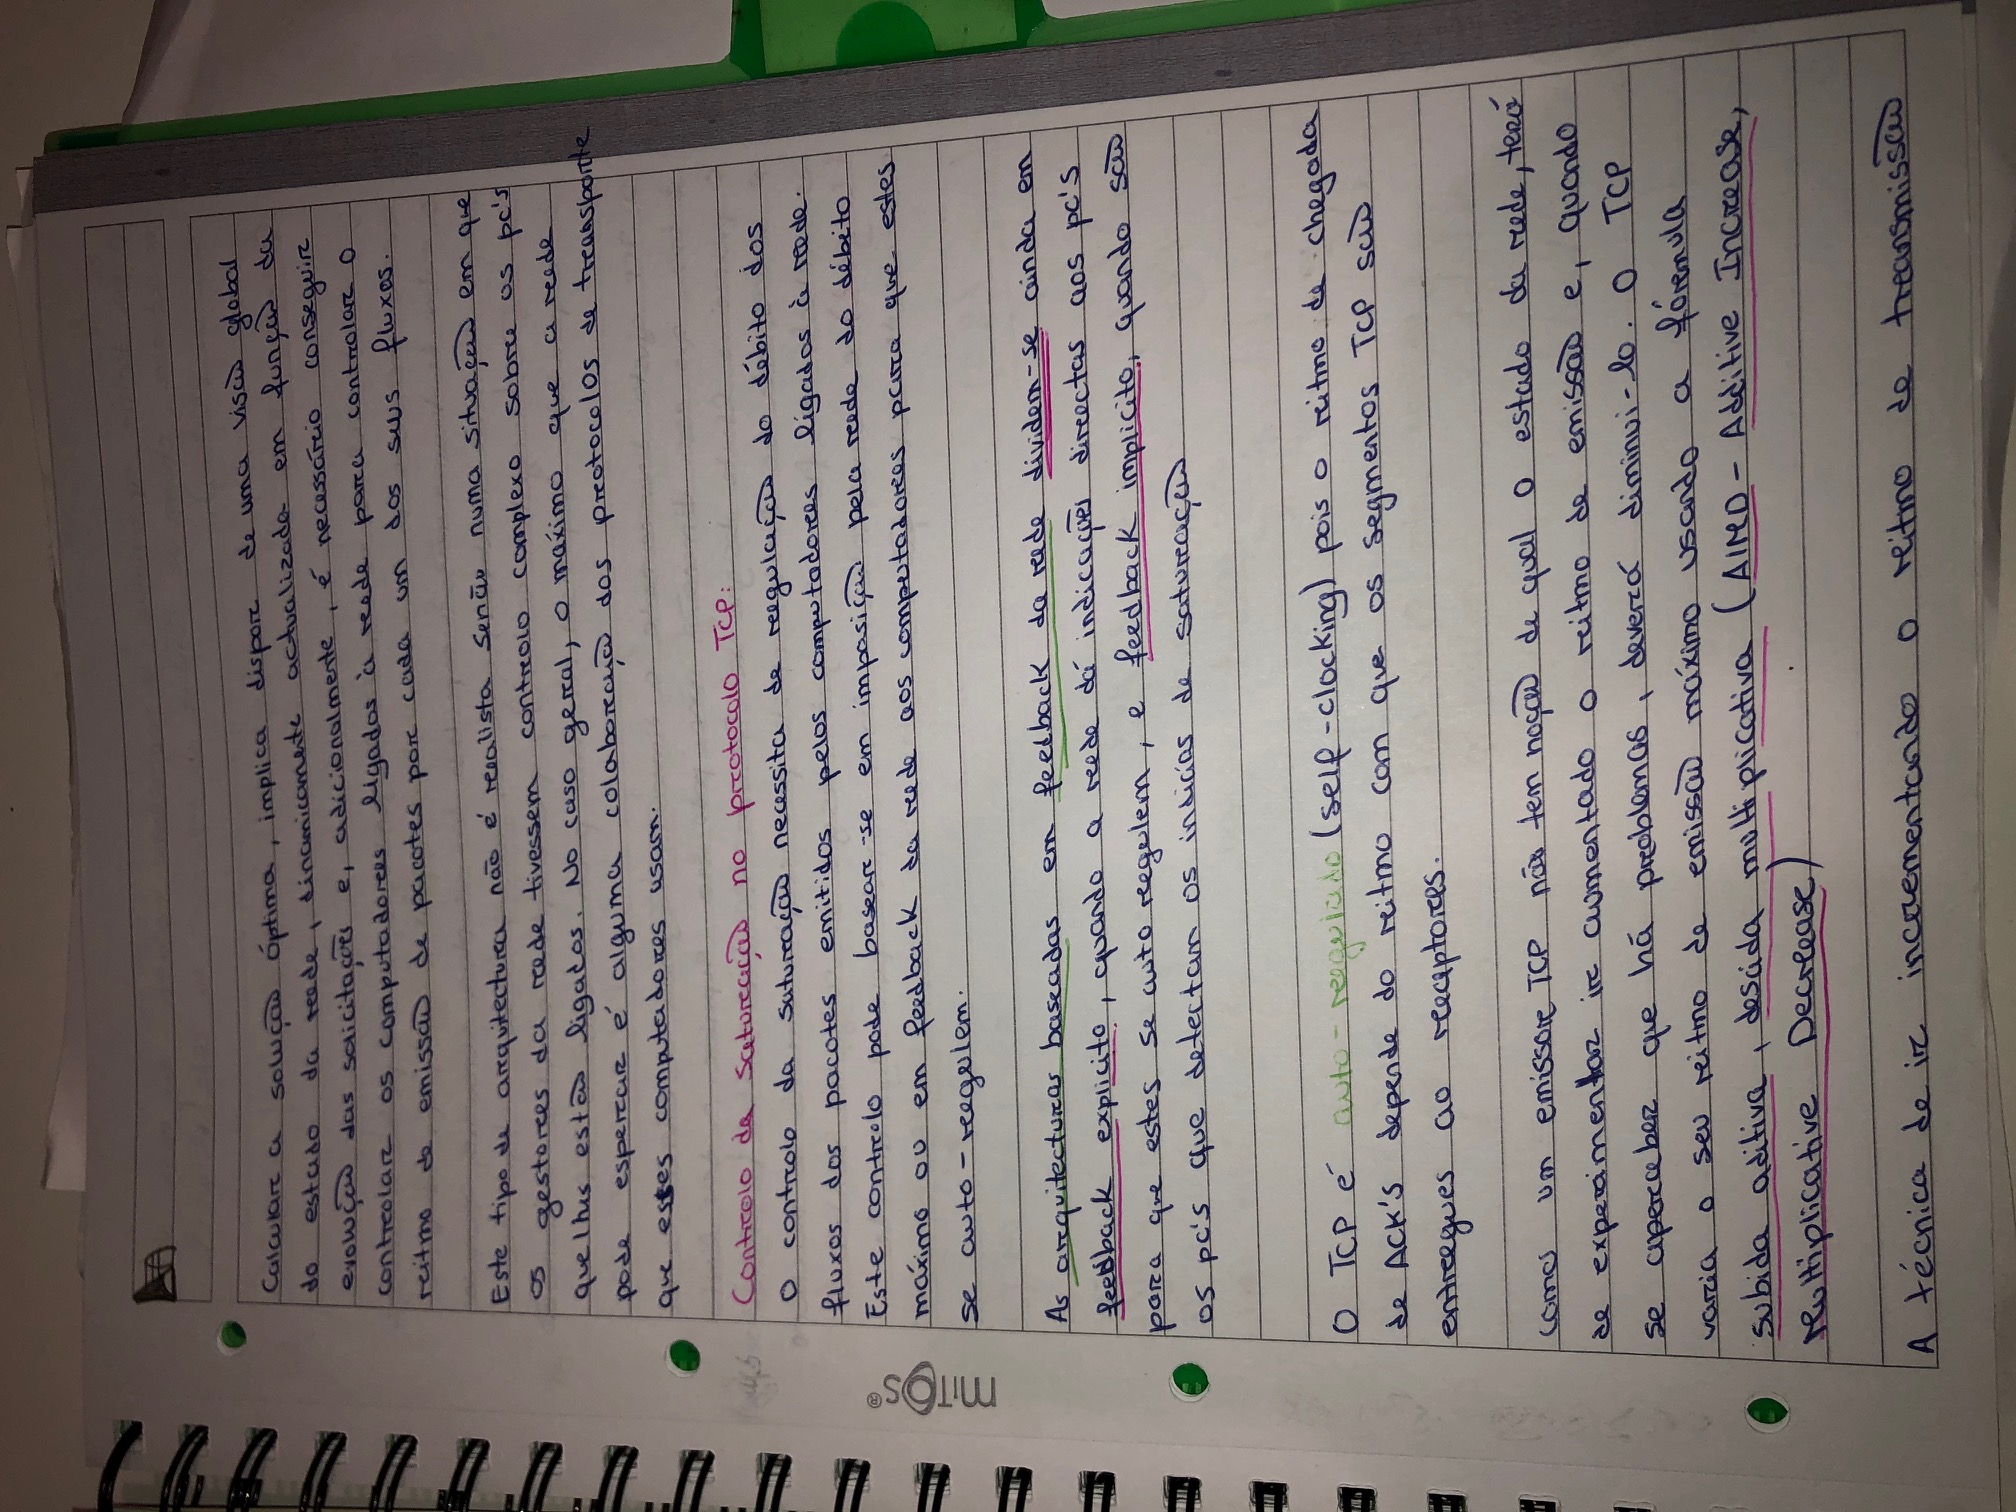 Calcular a solução óptima, implica dispor de uma visão global
do estado da rede, dinamicamente actualizada em função da
evolução das solicitações e, adicionalmente, é necessário conseguir
controlar os computadores ligados à rede para controlar o
ritmo de emissão de pacotes por cada um dos seus fluxos.
Este tipo de arquitectura não é realista senão numa situação em que
os gestores da rede tivessem controlo complexo sobre os pc's
que lhes estão ligados. No caso geral, o máximo que a rede
pode esperar é alguma colaboração dos protocolos de transporte
que estes computadores usam.
Controlo da saturação no protocolo TCP:
O controlo da saturação necessita de regulação do débito dos
fluxos dos pacotes emitidos pelos computadores ligados à rede.
Este controlo pode basear-se em imposição pela rede do débito
máximo ou em feedback da rede aos computadores para que estes
se auto-regulem.
mitos®
As arquitecturas baseadas em feedback da rede dividem-se ainda em
feedback explicito, quando a rede dá indicações directas aos pc's
para que estes se auto regulem, e feedback implicito, quando são
os pc's que detectam os indicios de saturação
O TCP é auto-regulado (self-clocking) pois o ritmo de chegada
de ACK's depende do ritmo com que os segmentos TCP são
entregues ao receptores.
Como um emissor TCP não tem noção de qual o estado da rede, terá
de experimentar ir aumentado o ritmo de emissão e, quando
se aperceber que há problemas, deverá diminui-lo. O TCP
varia o seu ritmo de emissão máximo usando a fórmula
subida aditiva, descida multiplicativa (AIMD - Additive Increase,
Multiplicative Decrease)
A técnica de ir incrementando o ritmo de transmissão